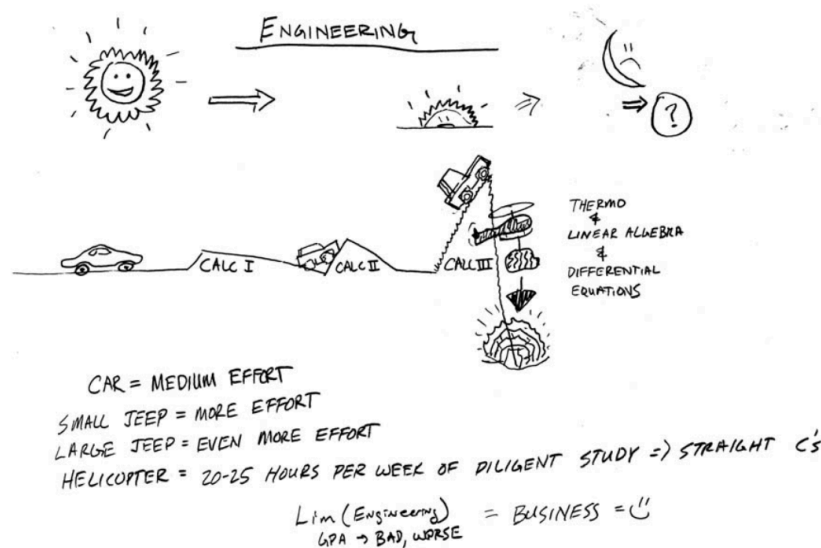 ENGINEERING
?
CALC I
CALC II
CALC III
THERMO
&
LINEAR ALGEBRA
&
DIFFERENTIAL
EQUATIONS
CAR = MEDIUM EFFORT
SMALL JEEP = MORE EFFORT
LARGE JEEP = EVEN MORE EFFORT
HELICOPTER = 20-25 HOURS PER WEEK OF DILIGENT STUDY => STRAIGHT C's
Lim (Engineering) = BUSINESS = 
GPA → BAD, WORSE